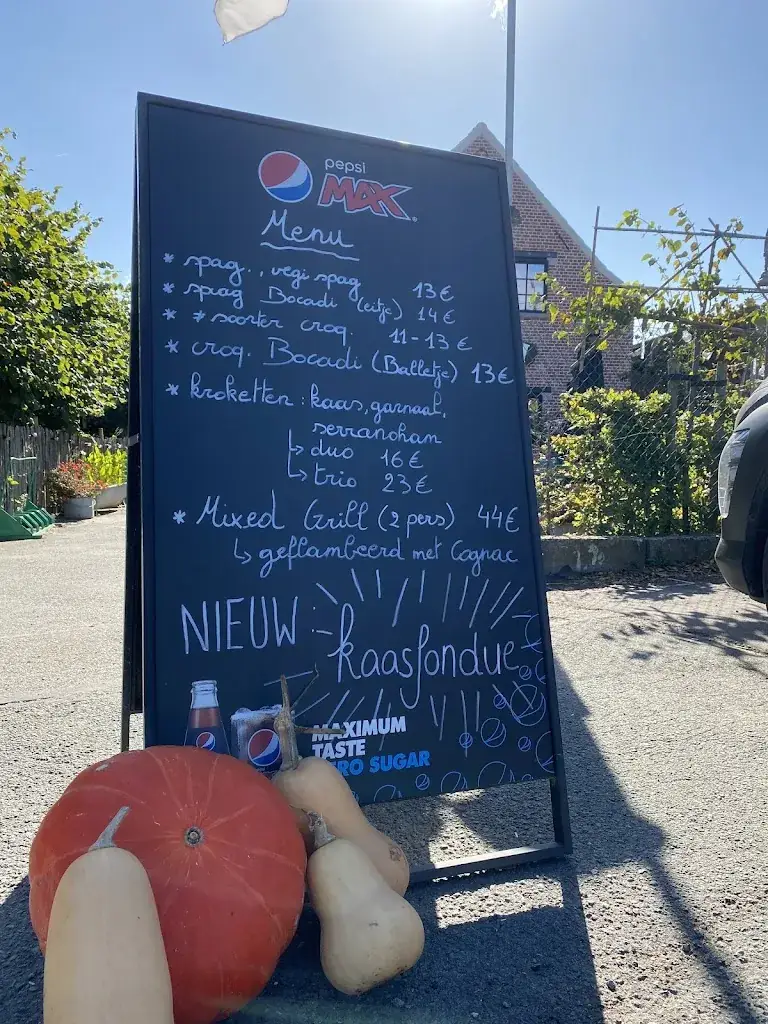 pepsi
MAX
Menu
* spag., vegi spag 13€
* spag Bocadi (eitje) 14€
* ≠ soorten croq. 11-13€
* croq. Bocadi (Balletje) 13€
* kroketten: kaas, garnaal,
serranoham
↳ duo 16€
↳ trio 23€
* Mixed Grill (2 pers) 44€
↳ geflambeerd met Cognac
NIEUW: kaasfondue
MAXIMUM
TASTE
RO SUGAR